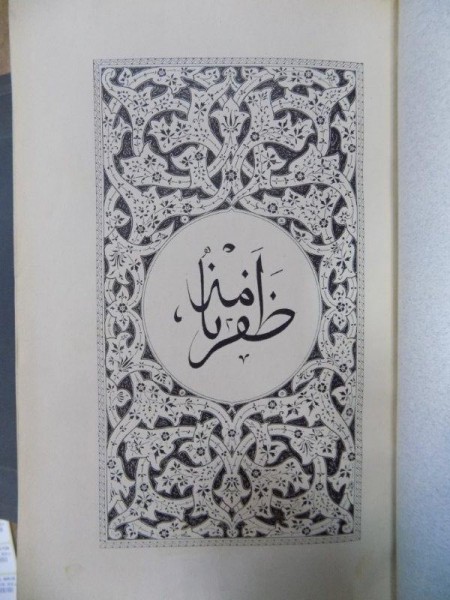 ظفرنامه